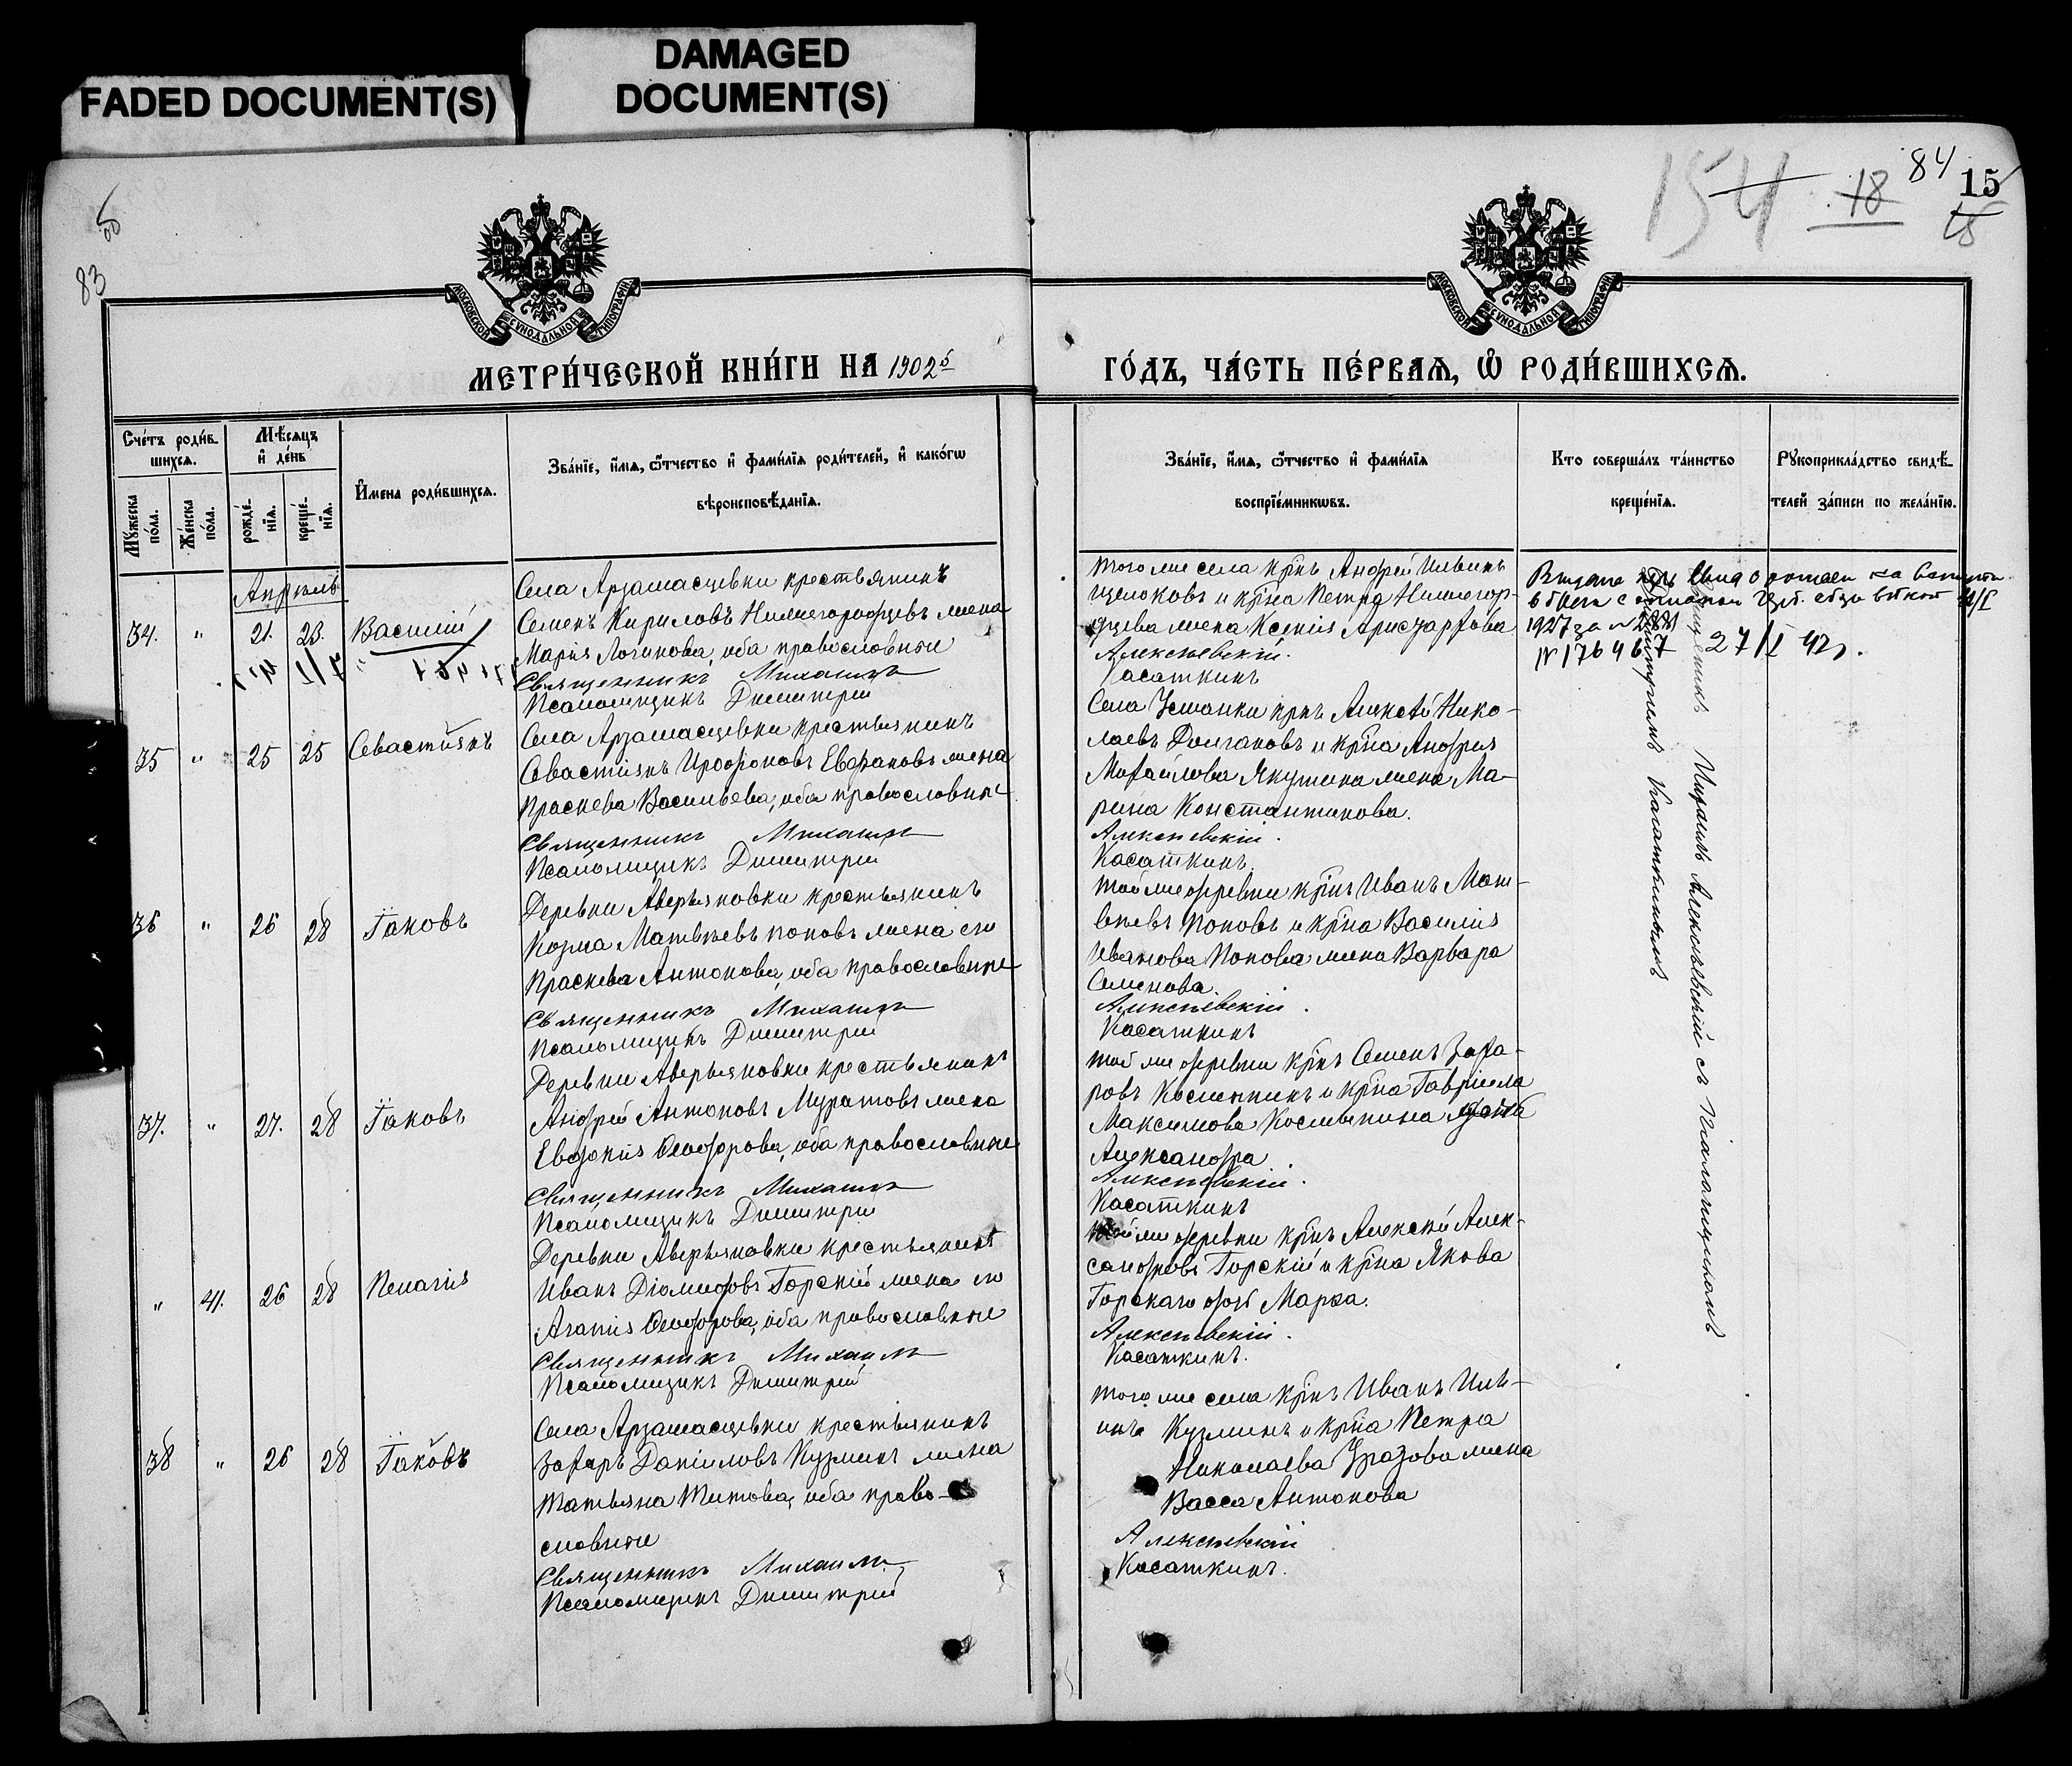 FADED DOCUMENT(S)
DAMAGED
DOCUMENT(S)
83
154
18
84
15
МОСКОВСКОЙ СѴНОДАЛЬНОЙ ТИПОГРАФІИ
МОСКОВСКОЙ СѴНОДАЛЬНОЙ ТИПОГРАФІИ
МЕТРИ́ЧЕСКОЙ КНИ́ГИ НА 1902й
ГО́ДЪ, ЧА́СТЬ ПЕ́РВАѦ, Ѽ РОДИ́ВШИХСѦ.
Сче́тъ роди́в-
шихсѧ.
Мꙋ́жеска по́ла.
Же́нска по́ла.
Мѣ́сѧцъ
и҆ де́нь
рожде́-
нїѧ.
креще́-
нїѧ.
И҆мена роди́вшихсѧ.
Зва́нїе, и҆́мѧ, ѻ҆́тчество и҆ фами́лїѧ роди́телей, и҆ како́гѡ
вѣроисповѣ́данїѧ.
Зва́нїе, и҆́мѧ, ѻ҆́тчество и҆ фами́лїѧ
воспрїе́мникѡвъ.
Кто соверша́лъ та́инство
креще́нїѧ.
Рꙋкоприкла́дство свидѣ́-
телей за́писи по жела́нїю.
Апрѣль
34. " 21. 23. Василій
Села Арзамасцевки крестьянинъ
Семенъ Кириловъ Нижегородцевъ жена
Марія Логинова, оба православные
Священникъ Михаилъ
Псаломщикъ Димитрій
того же села кр̃нъ Андрей Ильинъ
Щелоковъ и кр̃на Петра Нижегор-
дцева жена Ксенія Аристархова
Алексѣевскій.
Касаткинъ
1927 за №
№176467 27/I 42г.
Священникъ Михаилъ Алексѣевскій съ псаломщикомъ
Димитріемъ Касаткинымъ
35 " 25 25 Севастіянъ
Села Арзамасцевки крестьянинъ
Севастіянъ Иродіоновъ Евдоковъ жена
Праскева Васильева, оба православные
Священникъ Михаилъ
Псаломщикъ Димитрій
Села Усманки кр̃нъ Алексѣй Нико-
лаевъ Долгановъ и кр̃на Андрея
Михайлова Якушина жена Ма-
рина Константинова.
Алексѣевскій.
Касаткинъ
36 " 26 28 Іаковъ
Деревни Аверьяновки крестьянинъ
Козма Матвѣевъ Поповъ жена его
Праскева Антонова, оба православные
Священникъ Михаилъ
Псаломщикъ Димитрій
той же деревни кр̃нъ Иванъ Мат-
вѣевъ Поповъ и кр̃на Василія
Иванова Попова жена Варвара
Семенова.
Алексѣевскій.
Касаткинъ
37. " 27. 28 Іаковъ
Деревни Аверьяновки крестьянинъ
Андрей Антоновъ Муратовъ жена
Евдокія Ѳеодорова, оба православные
Священникъ Михаилъ
Псаломщикъ Димитрій
той же деревни кр̃нъ Семенъ Заха-
ровъ Космынинъ и кр̃на Гавріила
Максимова Космынина
Александра.
Алексѣевскій.
Касаткинъ
" 41. 26 28 Пелагія
Деревни Аверьяновки крестьянинъ
Иванъ Діомидовъ Горскій жена его
Агапія Ѳеодорова, оба православные
Священникъ Михаилъ
Псаломщикъ Димитрій
той же деревни кр̃нъ Алексѣй Алек-
сандровъ Горскій и кр̃на Якова
Горскаго дочь Марѳа.
Алексѣевскій.
Касаткинъ.
38 " 26 28 Іаковъ
Села Арзамасцевки крестьянинъ
Захаръ Даніиловъ Кузминъ жена
Татьяна Титова, оба право-
славные
Священникъ Михаилъ
Псаломщикъ Димитрій
того же села кр̃нъ Иванъ Иль-
инъ Кузминъ и кр̃на Петра
Николаева Уразова жена
Васса Антонова
Алексѣевскій
Касаткинъ.